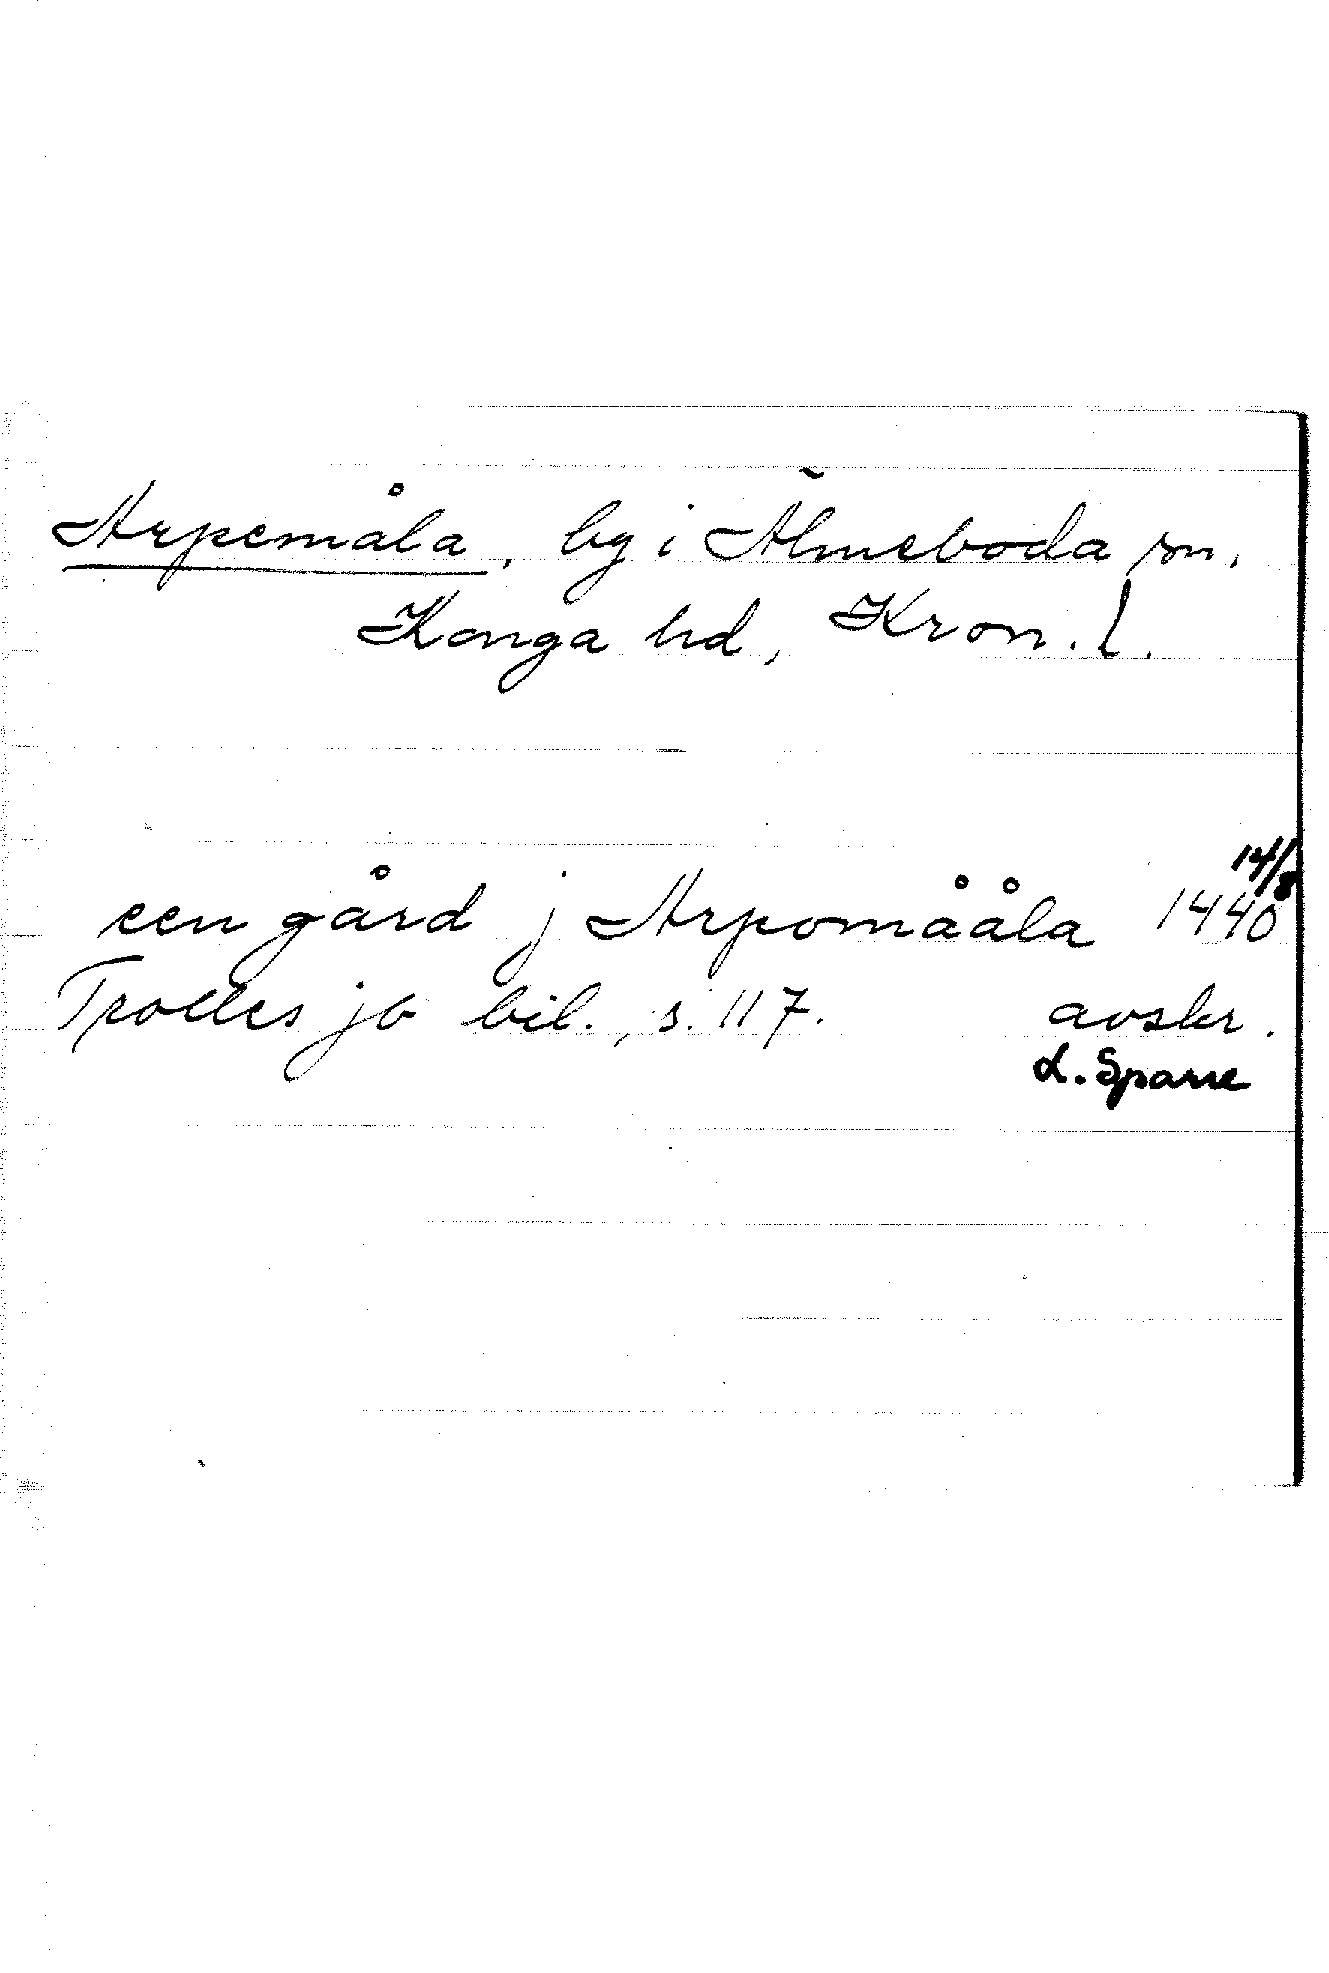 Arpemåla, by i Älmeboda sn,
Konga hd, Kron. l.
14/8
een gård j Arpomååla 1440
Trolles jb bil., s. 117. avskr.
L. Sparre